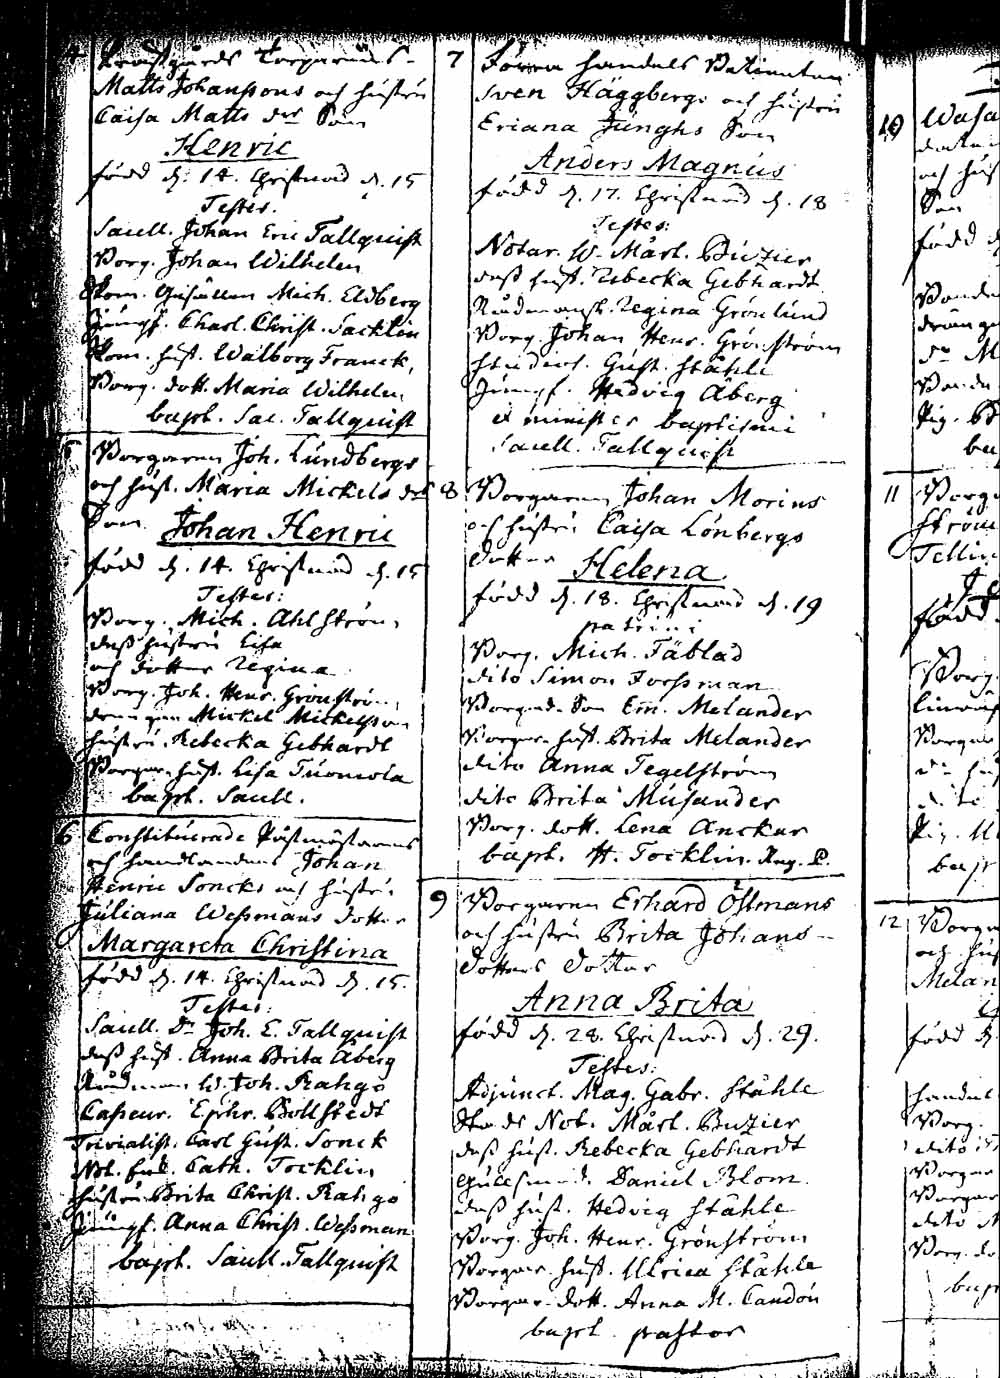 Matts Johanssons och hustru
Caisa Matts dr Son
Henric
född d. 14. Christnad d. 15
Testes.
Sacell. Johan Eric Tallquist
Borg. Johan Wilhelm
Skom. Gesällen Mich. Eldberg
Jungf. Charl. Christ. Sacklin
Skom. hust. Walborg Franck,
Borg. dott. Maria Wilhelm
bapt. Sac. Tallquist
Borgaren Joh. Lundbergs
och hust. Maria Mickels dr
Son Johan Henric
född d. 14. Christnad d. 15
Testes:
Borg. Mich. Ahlström,
dess hustru Lisa
och dotter Regina
Borg. Joh. Henr. Grönström,
drengen Mickel Mickelsson
hustru Rebecka Gebhardt
Borgar. hust. Lisa Tuomola
bapt. Sacell.
6 Constituerade Postmästarens
och handlandens Johan
Henric Soncks och hustru
Juliana Wessmans dotter
Margareta Christina
född d. 14. Christnad d. 15.
Testes:
Sacell. Dn Joh. E. Tallquist
dess hust. Anna Brita Åberg
Rådman W. Joh. Rahgo
Casseur. Ephr. Bollstedt
Trivialist. Carl Gust. Sonck
Not. Cath. Tocklin
hustru Brita Christ. Rahgo
Jungf. Anna Christ. Wessman
bapt. Sacell. Tallquist
7 handels
Sven Häggbergs och hustru
Eriana Junghs Son
Anders Magnus
född d. 17. Christnad d. 18
Testes:
Notar. W. Mårt. Buzier
dess hust. Rebecka Gebhardt
Regina Grönlund
Borg. Johan Henr. Grönström
Studios. Gust. Ståhle
Jungf. Hedvig Åberg
et minister baptismi
Sacell. Tallquist
8 Borgaren Johan Morins
och hustru Caisa Lönbergs
dotter Helena
född d. 18. Christnad d. 19
patrini
Borg. Mich. Täblad
dito Simon Forssman
Borgar. Son Em. Melander
Borgar. hust. Brita Melander
dito Anna Tegelström
dito Brita Musander
Borg. dott. Lena Anckar
bapt. H. Tocklin.
9 Borgaren Erhard Östmans
och hustru Brita Johans-
dotters dotter
Anna Brita
född d. 28. Christnad d. 29.
Testes:
Adjunct. Mag. Gabr. Ståhle
Stads Not. Mårt. Buzier
dess hust. Rebecka Gebhardt
Daniel Blom.
dess hust. Hedvig Ståhle
Borg. Joh. Henr. Grönström
Borgar. hust. Ulrica Ståhle
Borgar. dott. Anna M. Candon
bapt. pastor
10 Wasa
och hus
Son
född d
11 Borg
Ström
Tellin
född
Borg.
12 Borga
och hus
Melan
född d.
handel
Borg.
dito
Borgar
Borgar
dito
Borg. do
bapt